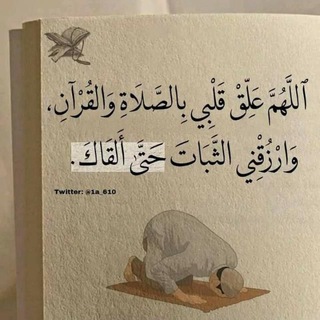 اللَّهُمَّ عَلِّقْ قَلْبِي بِالصَّلَاةِ وَالقُرْآنِ،
وَارْزُقْنِي الثَّبَاتَ حَتَّىٰ أَلقَاكَ.
Twitter: @1a_610